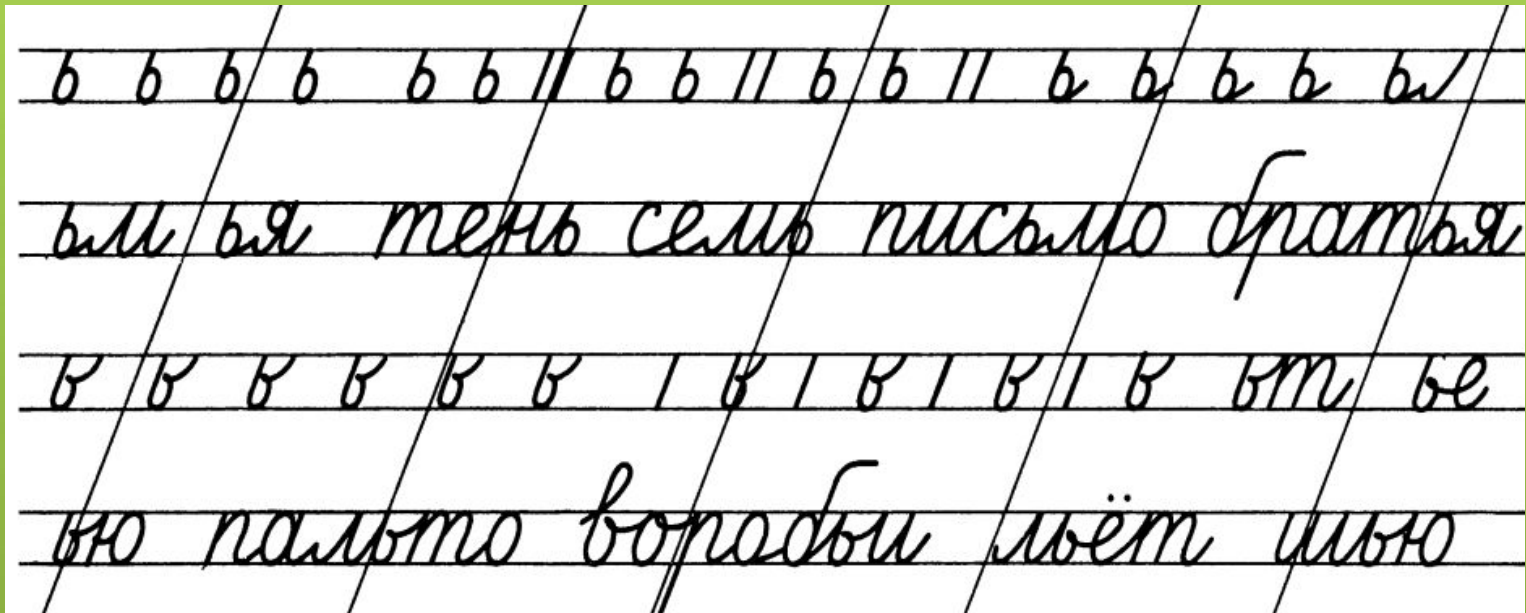 ь ь ь ь ь ь ь ь ь ь ь ь ь ь ь
ьм ья тень семь письмо братья
ь ь ь ь ь ь ь ь ь ь ьт ье
ью пальто воробьи льёт шью